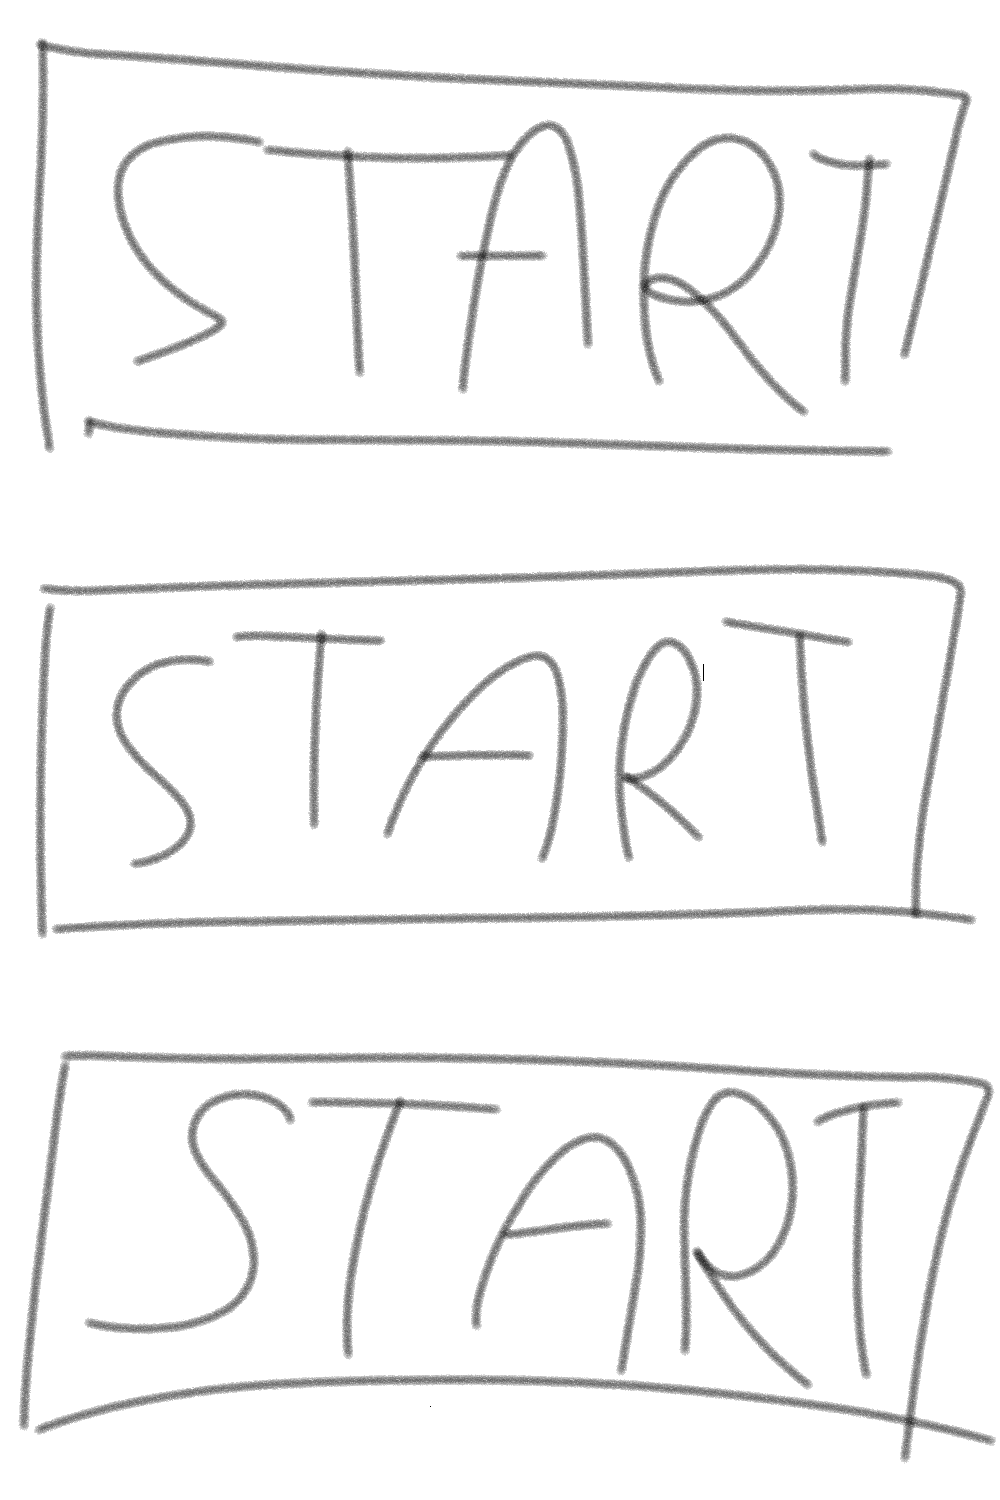 START
START
START